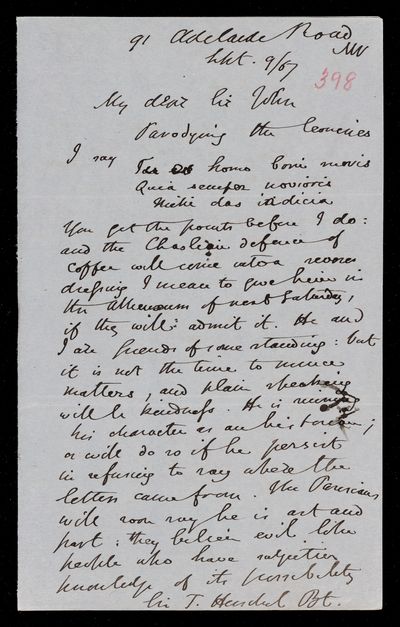 91 Adelaide Road
NW
Sept. 9/67
398
My dear Sir John
Parodying the Leonines
I say
Tu es homo boni moris
Quia semper novioris
Mihi das indicia
You get the points before I do:
and the Chaslesian defence of
will come into a severe
dressing I mean to give him in
the Athenaeum of next Saturday,
if they will admit it. He and
I are friends of some standing: but
it is not the time to mince
matters, and plain speaking
will be kindness. He is
his character as an historian;
or will do so if he persist
in refusing to say where the
letters came from. The Parisians
will soon say he is art and
part: they believe evil like
people who have subjective
knowledge of its possibility
Sir J. Herschel Bt.